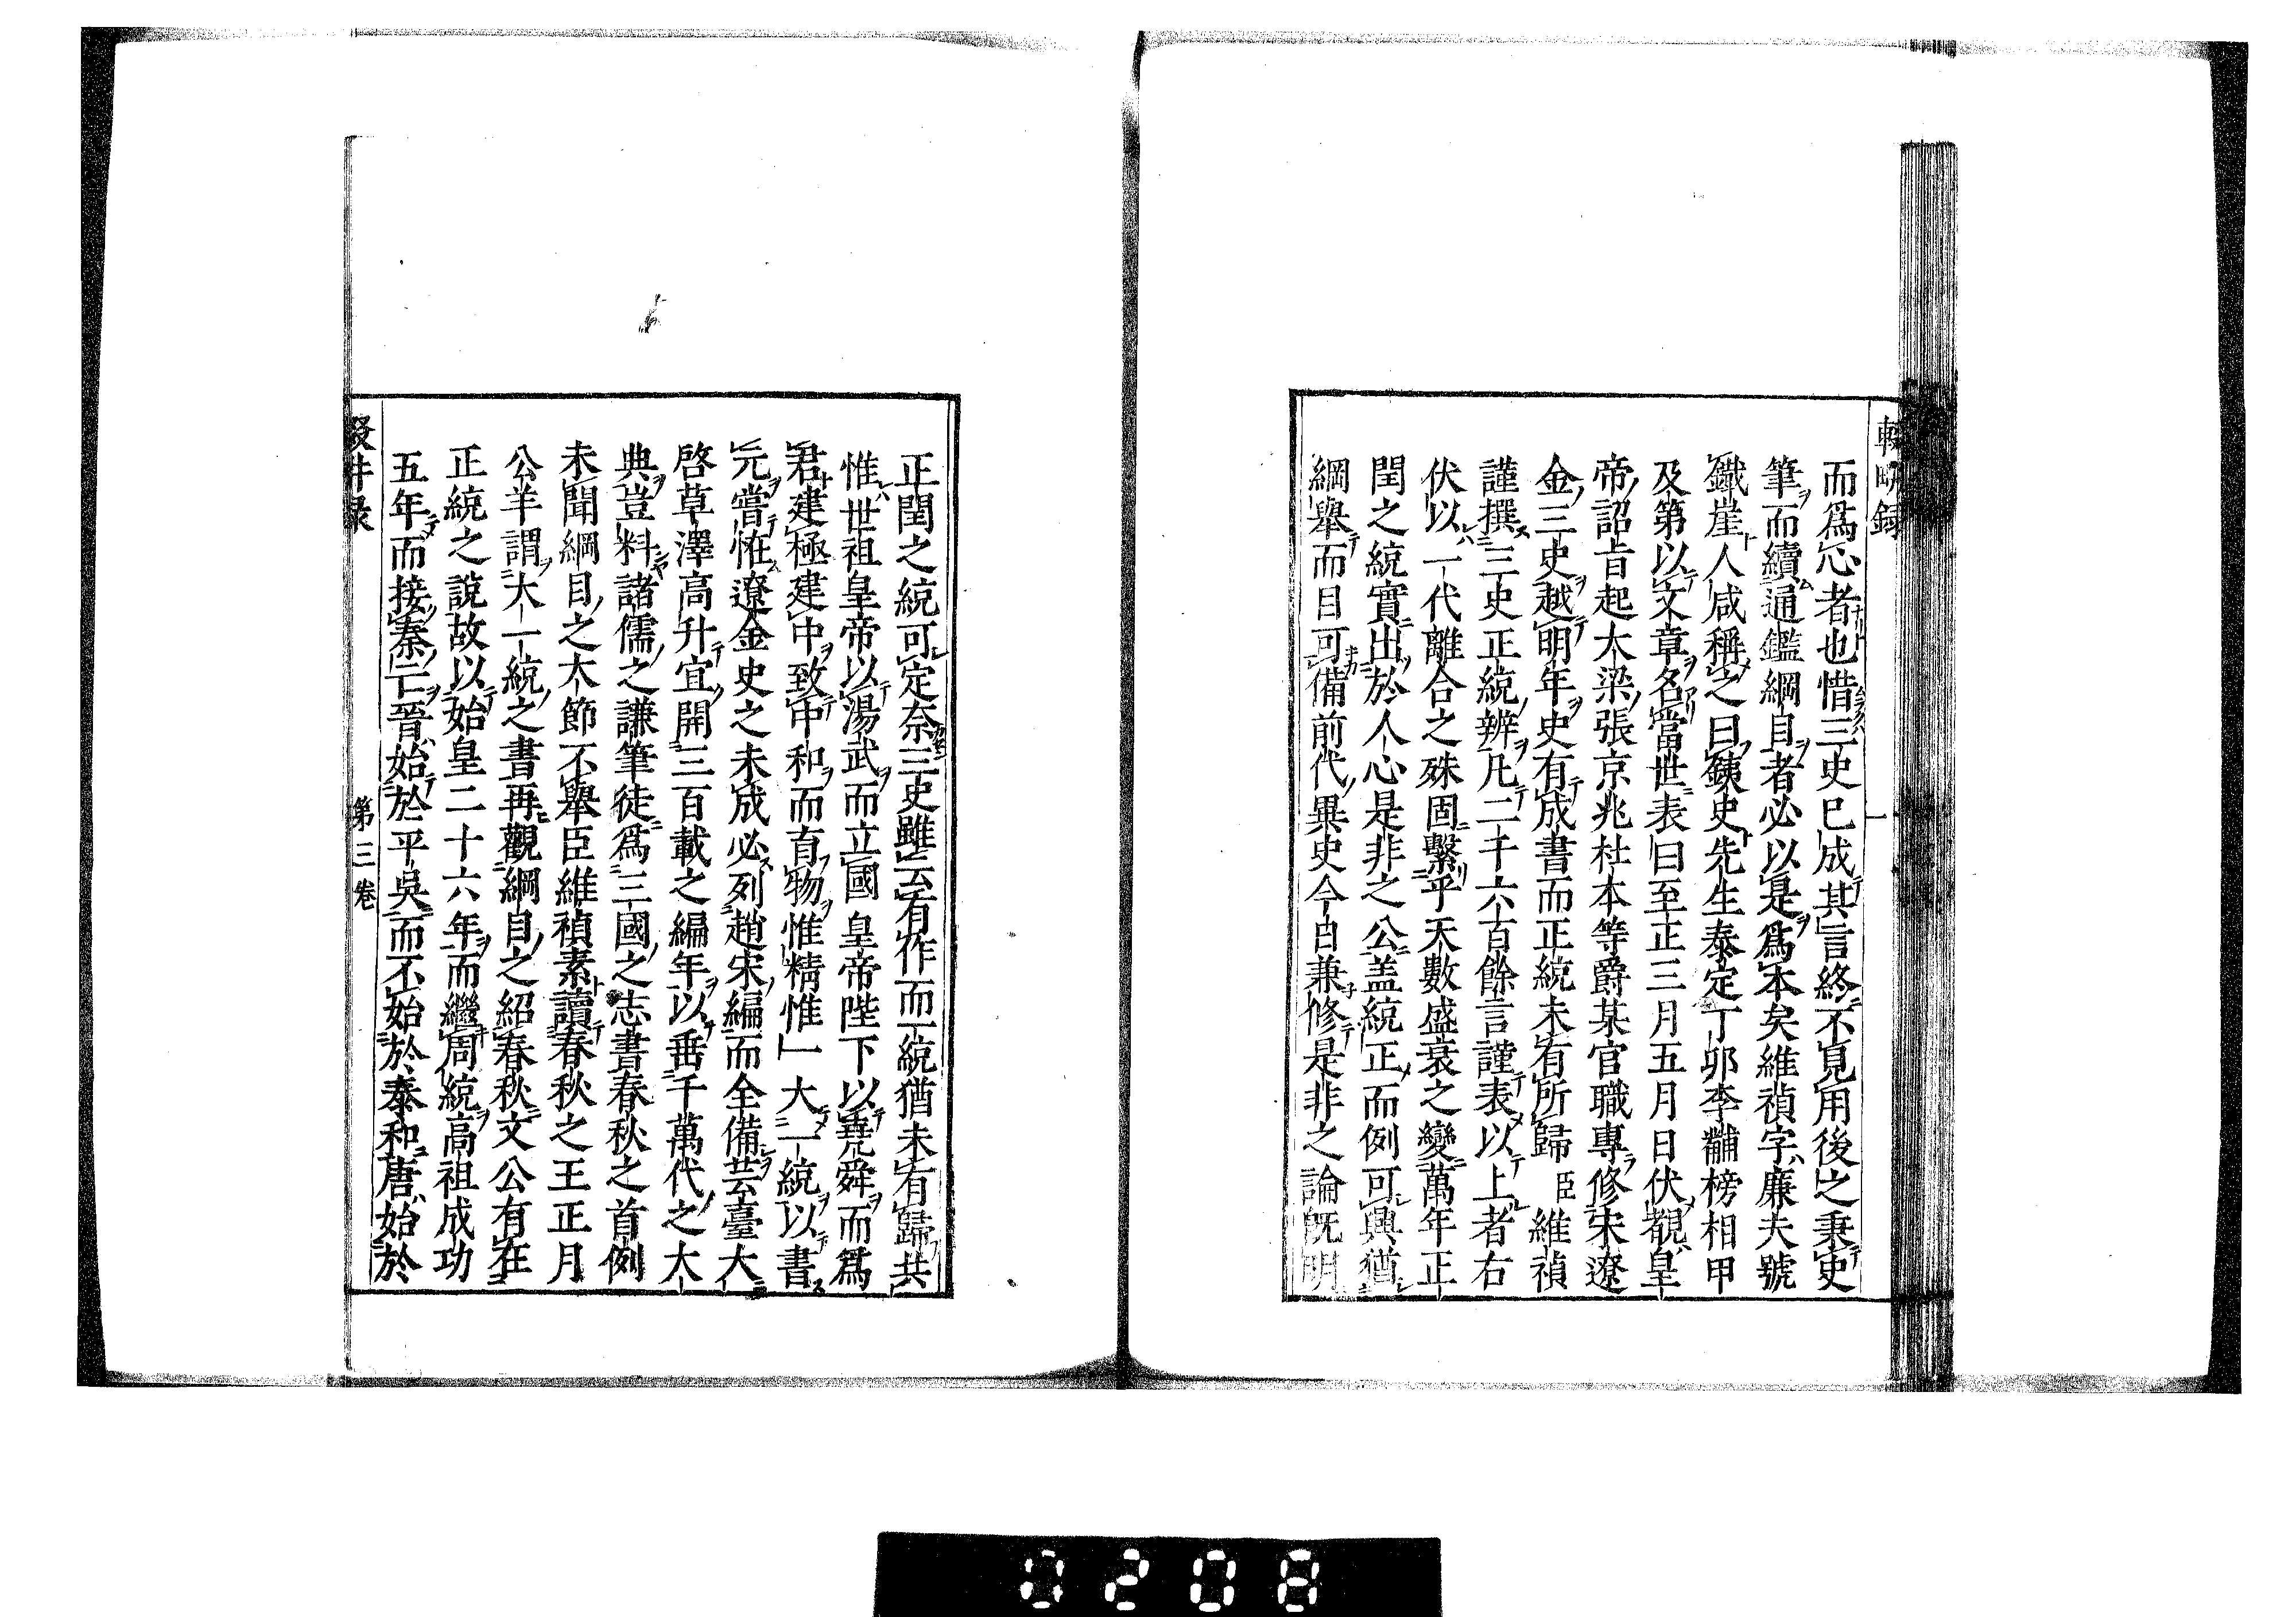 而爲心者也惜三史已成其言終不見用後之秉史
筆而續通鑑綱目者必以是爲本矣維禎字廉夫號
鐵崖人咸稱之曰鐵史先生泰定丁卯李黼榜相甲
及第以文章名當世表曰至正三月五月日伏覩皇
帝詔旨起大梁張京兆杜本等爵某官職專修宋遼
金三史越明年史有成書而正統未有所歸臣維禎
謹撰三史正統辨凡二千六百餘言謹表以上者右
伏以一代離合之殊固繫乎天數盛衰之變萬年正
閏之統實出於人心是非之公盖統正而例可興猶
綱舉而目可備前代異史今白兼修是非之論旣明
正閏之統可定奈三史雖云有作而一統猶未有歸共
惟世祖皇帝以湯武而立國皇帝陛下以堯舜而爲
君建極建中致中和而育物惟精惟一大一統以書
元嘗恠遼金史之未成必列趙宋編而全備芸臺大
啓草澤高升宜開三百載之編年以垂千萬代之大
典豈料諸儒之謙筆徒爲三國之志書春秋之首例
未聞綱目之大節不舉臣維禎素讀春秋之王正月
公羊謂大一統之書再觀綱目之紹春秋文公有在
正統之說故以始皇二十六年而繼周統高祖成功
五年而接秦亡晉始於平吳而不始於泰和唐始於
輟畊録
一
第三卷
0208